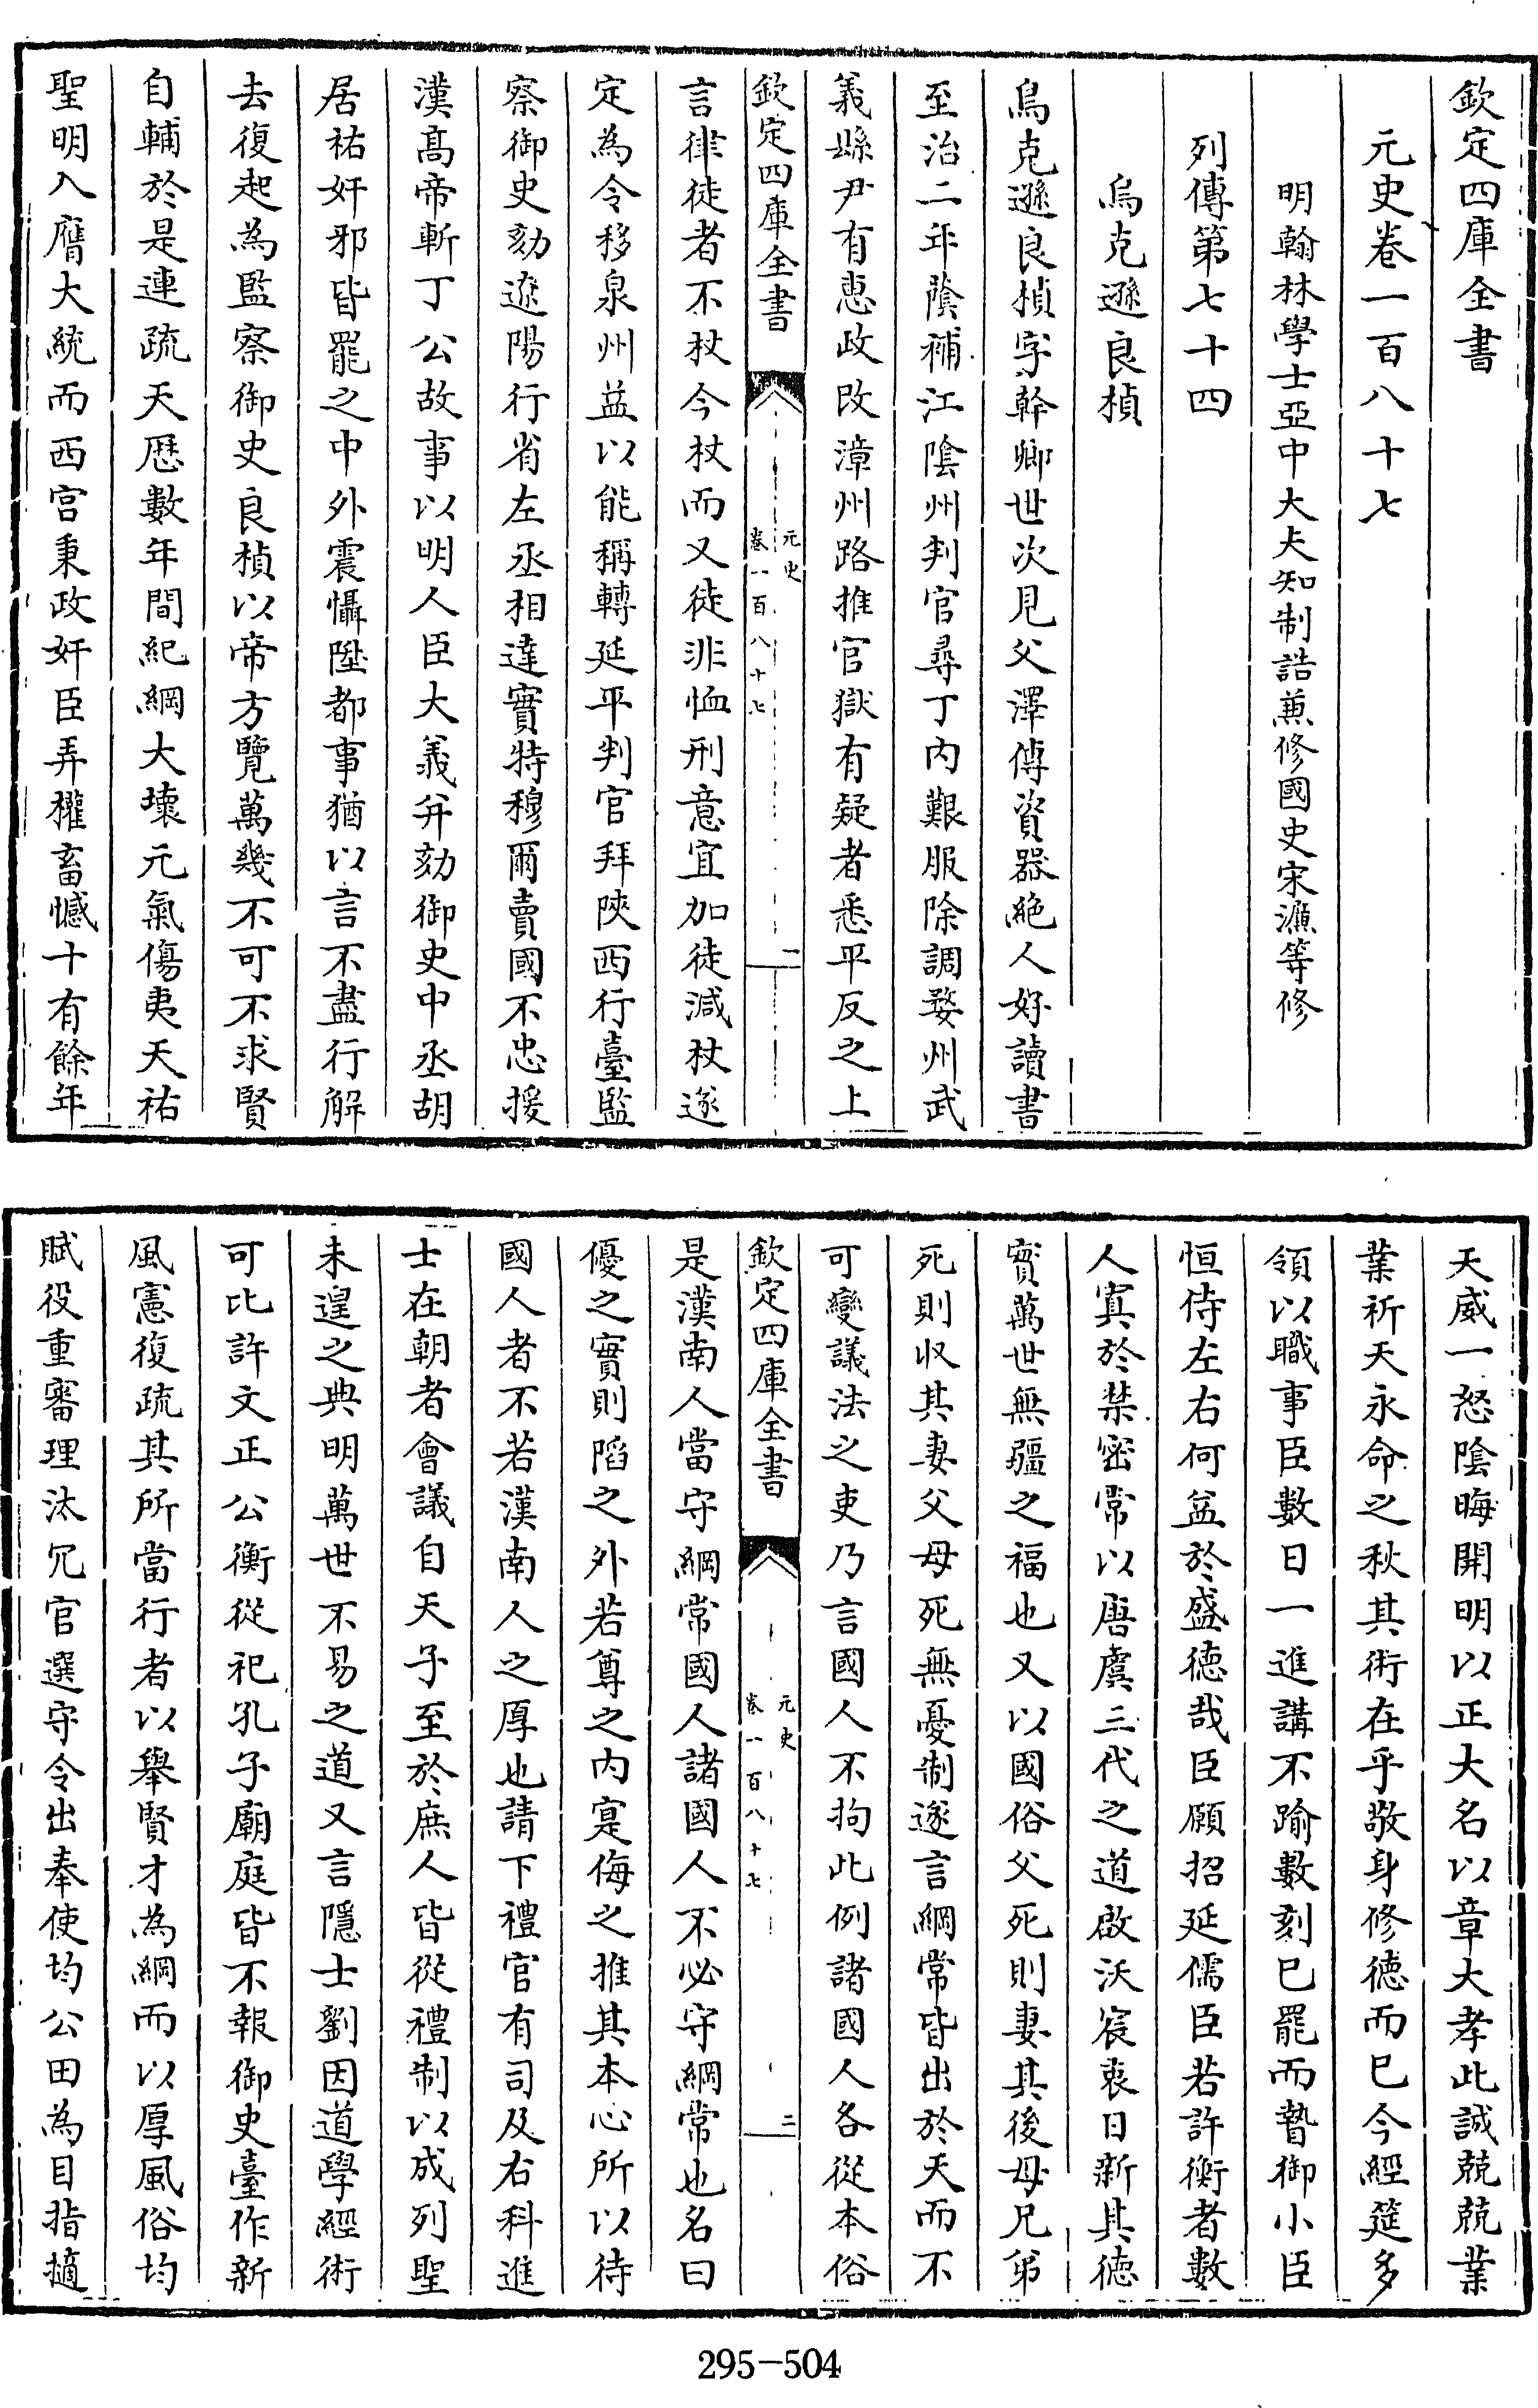 欽定四庫全書
元史卷一百八十七
明翰林學士亞中大夫知制誥兼修國史宋濂等修
列傳第七十四
烏克遜良楨
烏克遜良楨字幹卿世次見父澤傳資器絶人好讀書
至治二年蔭補江陰州判官尋丁内艱服除調婺州武
義縣尹有惠政改漳州路推官獄有疑者悉平反之上
欽定四庫全書
元史
卷一百八十七
一
言律徒者不杖今杖而又徒非恤刑意宜加徒減杖遂
定為令移泉州益以能稱轉延平判官拜陜西行臺監
察御史劾遼陽行省左丞相達實特穆爾賣國不忠援
漢髙帝斬丁公故事以明人臣大義并劾御史中丞胡
居祐奸邪皆罷之中外震懾陞都事猶以言不盡行解
去復起為監察御史良楨以帝方覽萬幾不可不求賢
自輔於是連疏天厯數年間紀綱大壞元氣傷夷天祐
聖明入膺大統而西宫秉政奸臣弄權畜憾十有餘年
天威一怒陰晦開明以正大名以章大孝此誠兢兢業
業祈天永命之秋其術在乎敬身修徳而已今經筵多
領以職事臣數日一進講不踰數刻已罷而暬御小臣
恒侍左右何益於盛徳哉臣願招延儒臣若許衡者數
人寘於禁密常以唐虞三代之道啟沃宸衷日新其徳
實萬世無疆之福也又以國俗父死則妻其後母兄弟
死則収其妻父母死無憂制遂言綱常皆出於天而不
可變議法之吏乃言國人不拘此例諸國人各從本俗
欽定四庫全書
元史
卷一百八十七
二
是漢南人當守綱常國人諸國人不必守綱常也名曰
優之實則陷之外若尊之内寔侮之推其本心所以待
國人者不若漢南人之厚也請下禮官有司及右科進
士在朝者會議自天子至於庶人皆從禮制以成列聖
未遑之典明萬世不易之道又言隱士劉因道學經術
可比許文正公衡從祀孔子廟庭皆不報御史臺作新
風憲復疏其所當行者以舉賢才為綱而以厚風俗均
賦役重審理汰冗官選守令出奉使均公田為目指擿
295-504